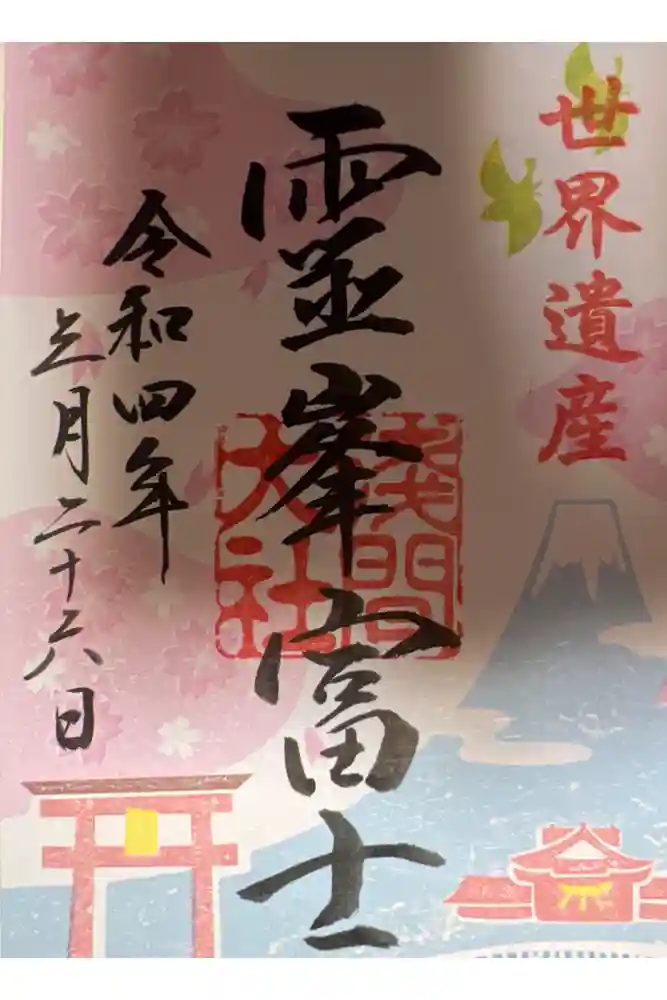 世界遺産
霊峯富士
淺間
大社
令和四年
三月二十六日